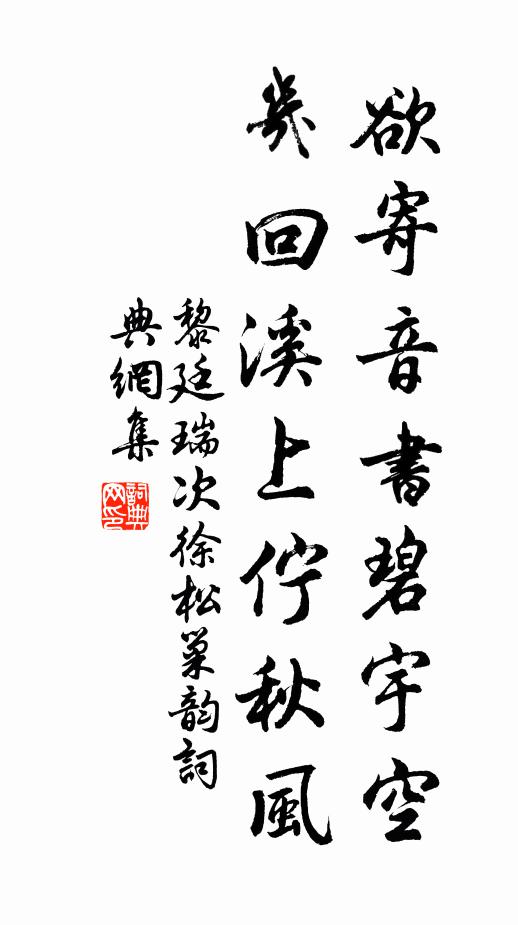 欲寄音書碧宇空
幾回溪上佇秋風
黎廷瑞次徐松巢韵詞
典網集
詞典网印